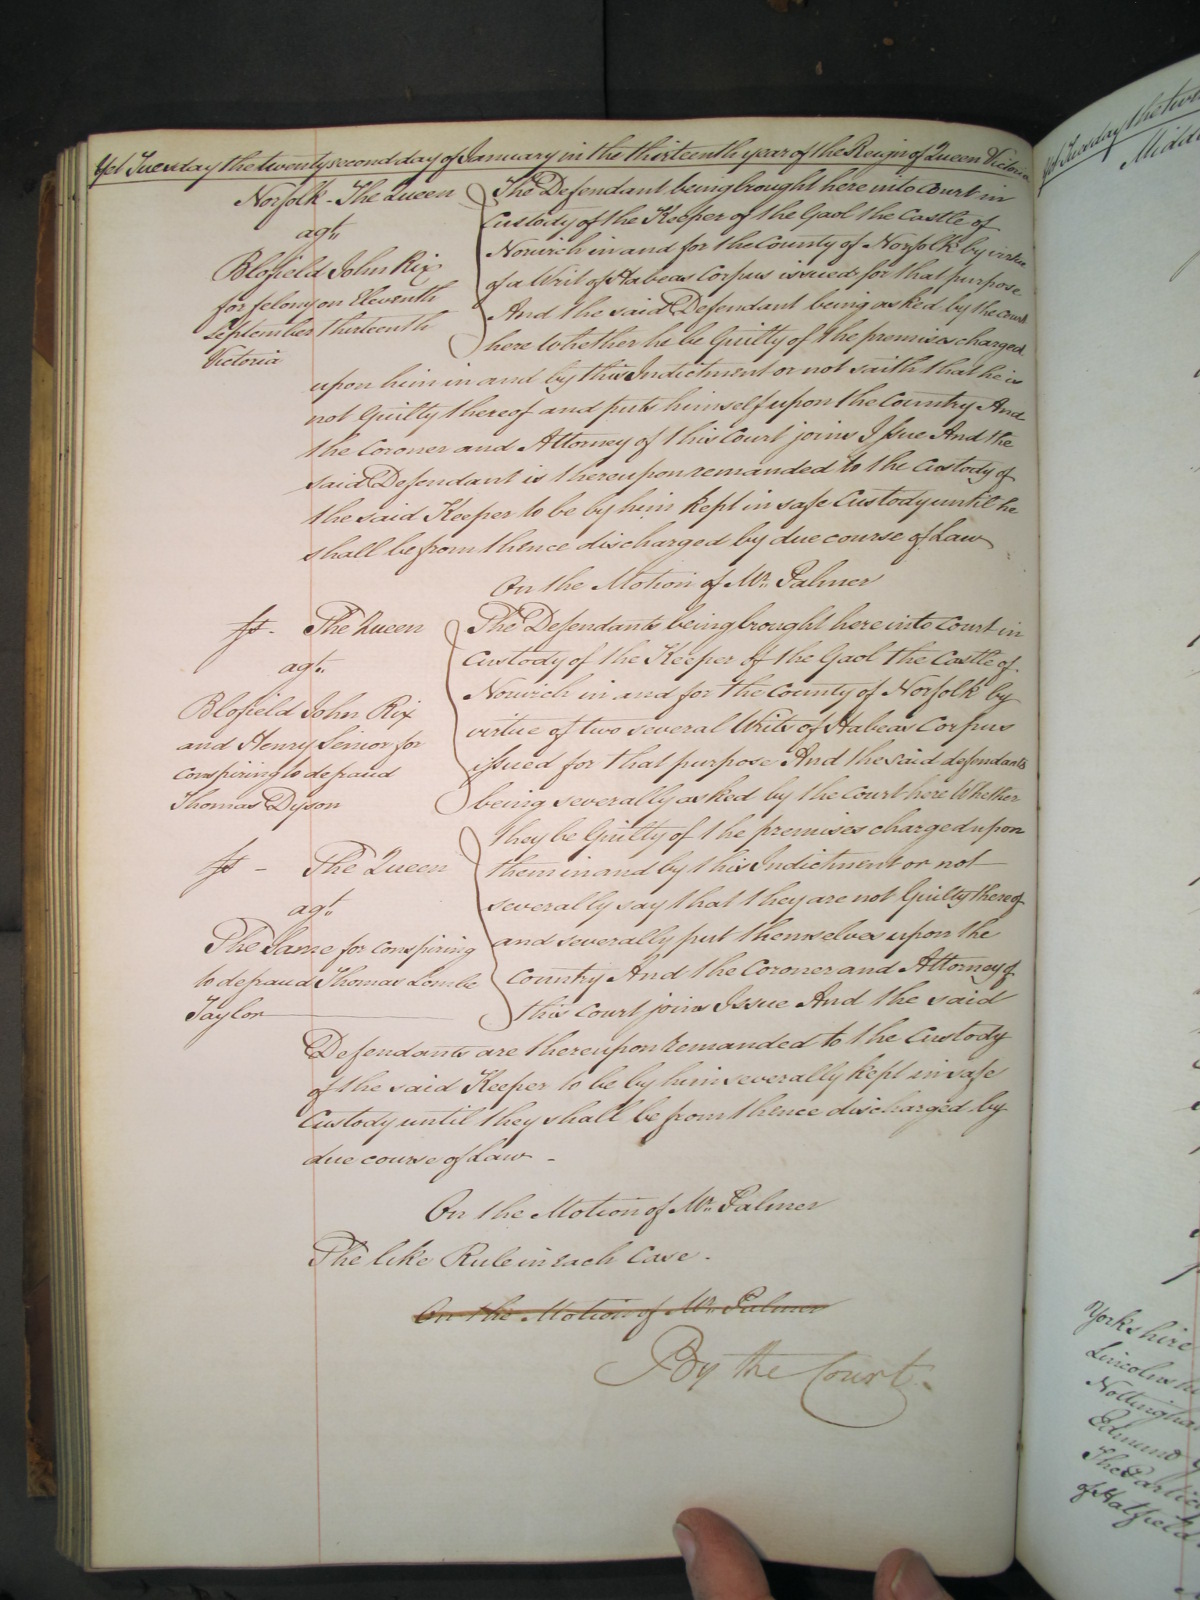 Yet Tuesday the twenty second day of January in the thirteenth year of the Reign of Queen Victoria
Norfolk - The Queen
agt.
Blofield John Rix
for felony on Eleventh
September thirteenth
Victoria
The Defendant being brought here into Court in
Custody of the Keeper of the Gaol the Castle of
Norwich in and for the County of Norfolk by virtue
of a Writ of Habeas Corpus issued for that purpose
And the said Defendant being asked by the Court
here Whether he be Guilty of the premises charged
upon him in and by this Indictment or not saith that he is
not Guilty thereof and puts himself upon the Country And
the Coroner and Attorney of this Court joins Issue And the
said Defendant is thereupon remanded to the Custody of
the said Keeper to be by him kept in safe Custody until he
shall be from thence discharged by due course of Law
On the Motion of Mr. Palmer
The Queen
agt.
Blofield John Rix
and Henry Senior for
conspiring to defraud
Thomas Dyson
The Queen
agt.
The Same for conspiring
to defraud Thomas Lombe
Taylor
The Defendants being brought here into Court in
Custody of the Keeper of the Gaol the Castle of
Norwich in and for the County of Norfolk by
virtue of two several Writs of Habeas Corpus
issued for that purpose And the said defendants
being severally asked by the Court here Whether
they be Guilty of the premises charged upon
them in and by this Indictment or not
severally say that they are not Guilty thereof
and severally put themselves upon the
Country And the Coroner and Attorney of
this Court joins Issue And the said
Defendants are thereupon remanded to the Custody
of the said Keeper to be by him severally kept in safe
Custody until they shall be from thence discharged by
due course of Law -
On the Motion of Mr. Palmer
The like Rule in each Case.
On the Motion of Mr. Palmer
By the Court.
Yet Tuesday the
Yorkshire
Edmund
of Hatfield